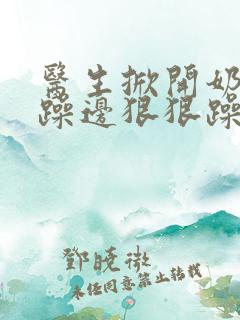 醫生掀開奶
躁邊狠狠躁
鄧曉微
未经同意禁止转载